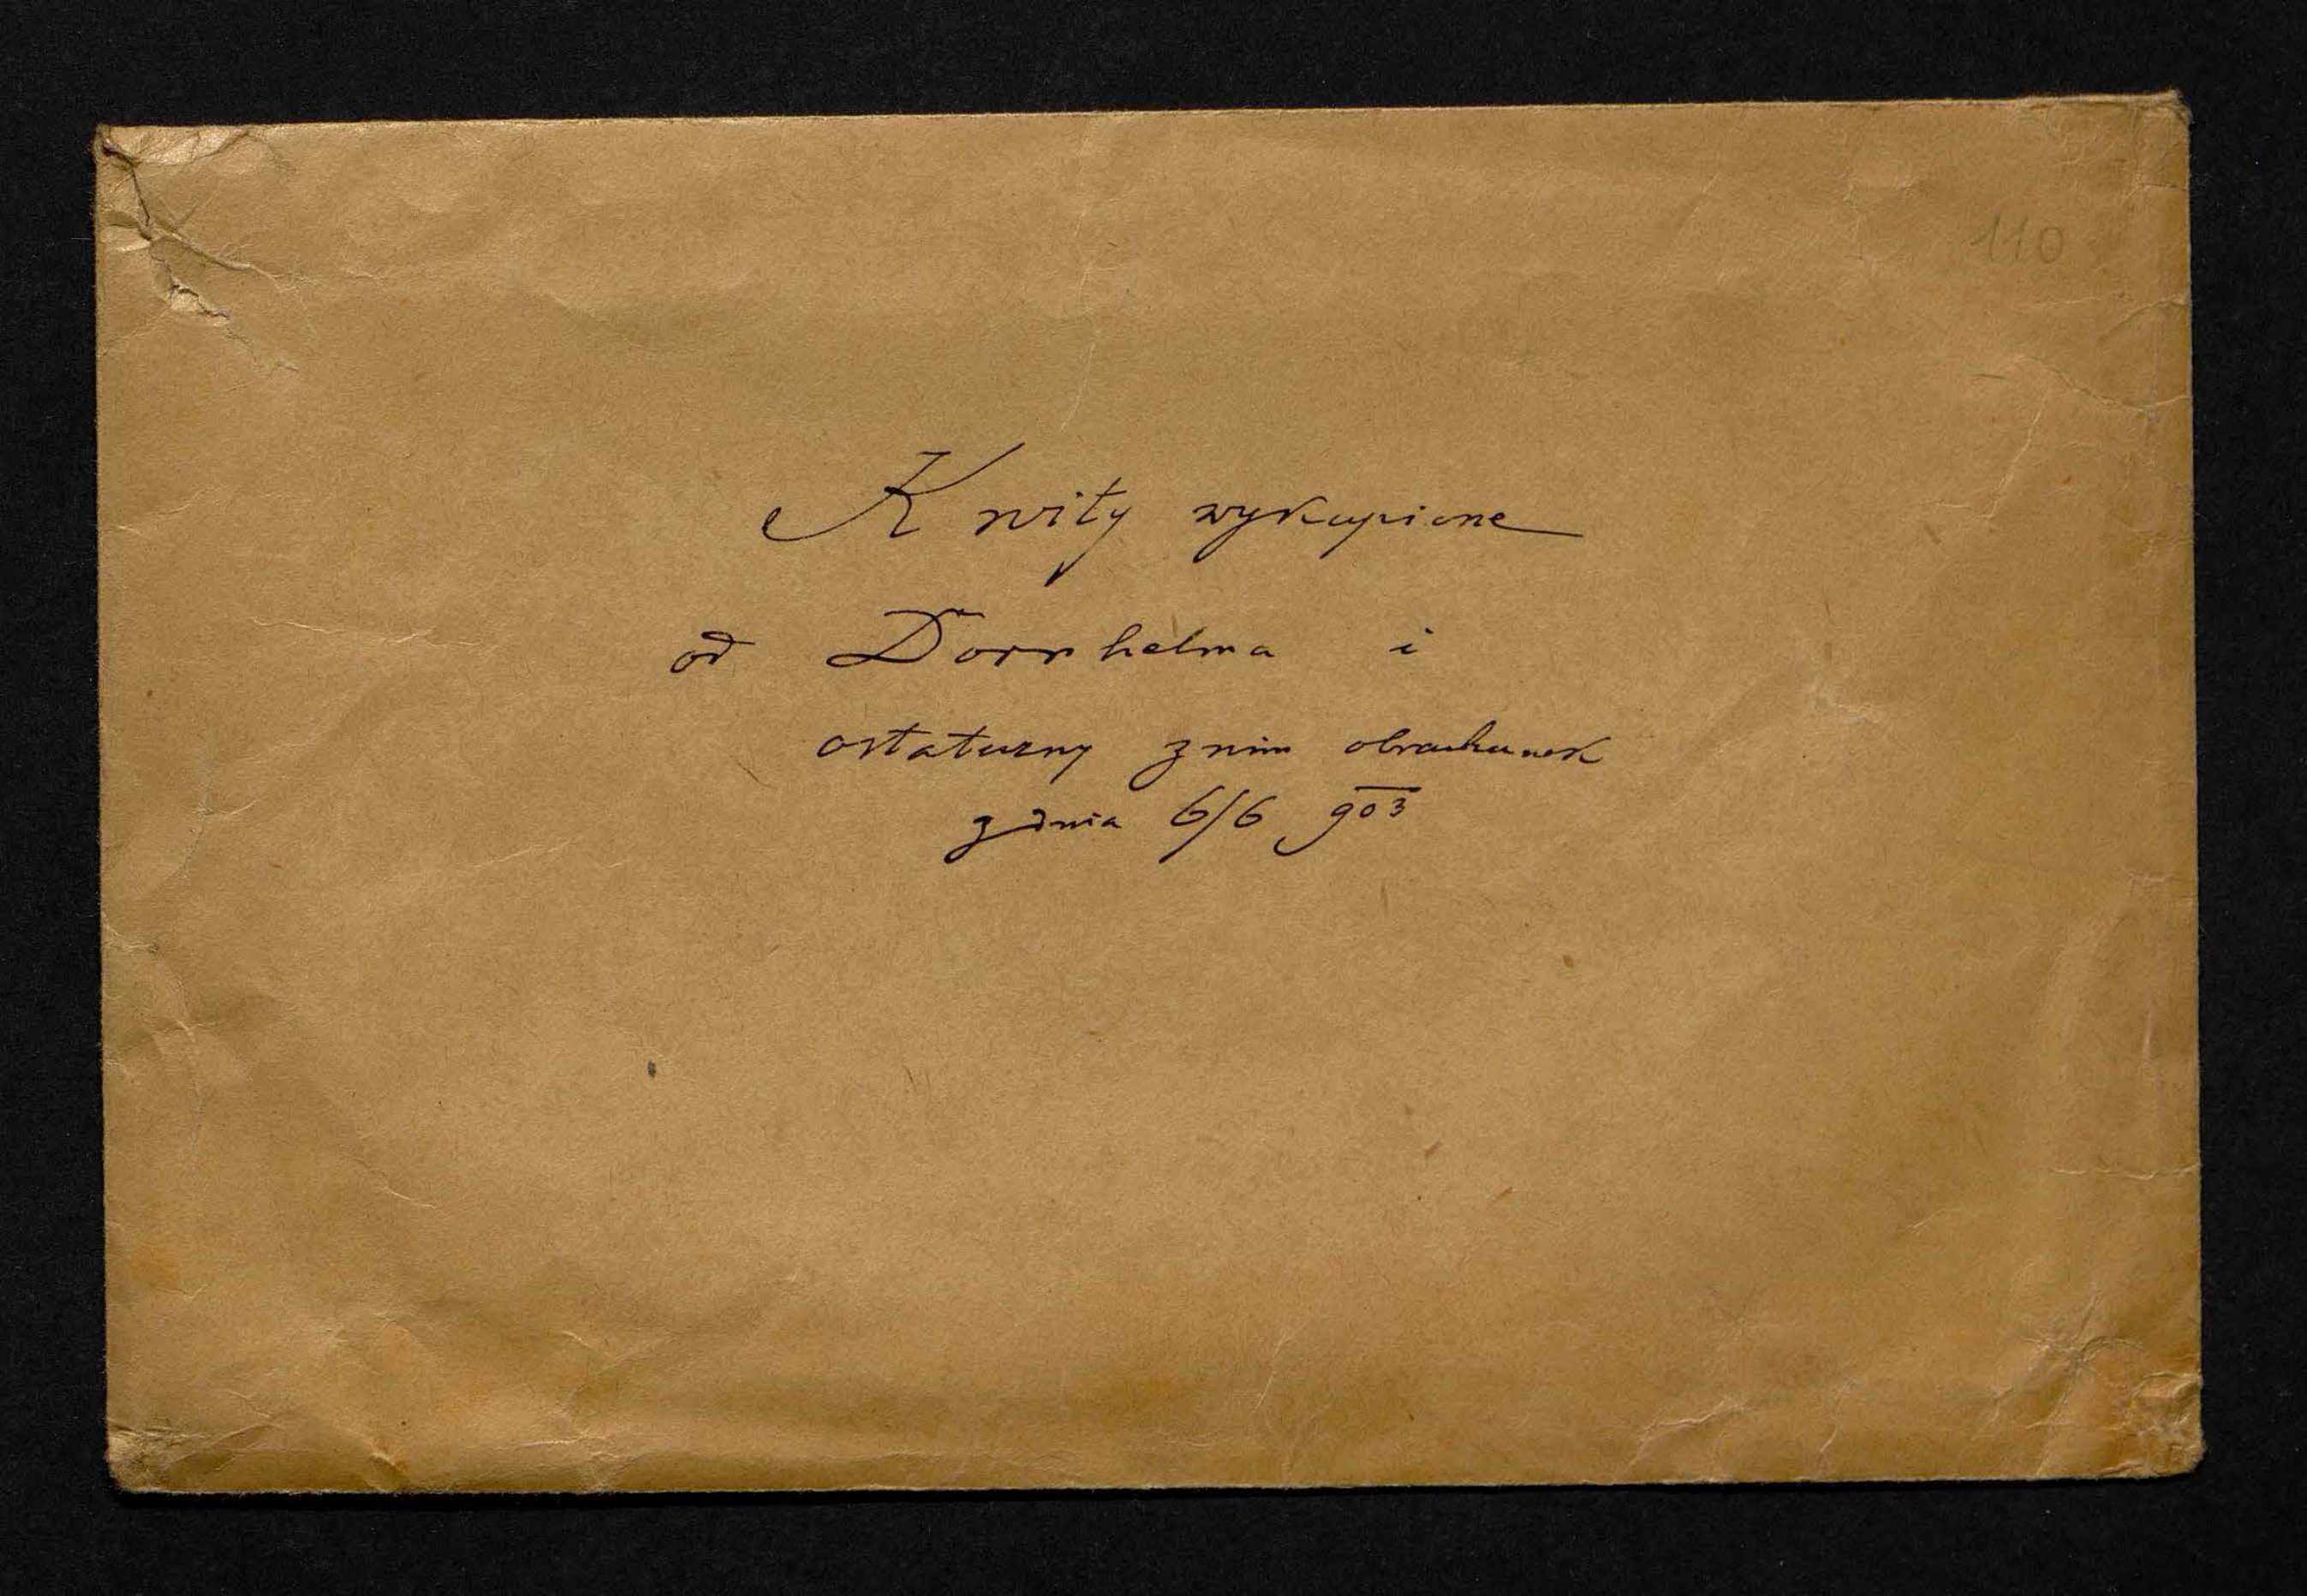 110
Kwity wykupione
od Dornhelma i
ostateczny z nim obrachunek
z dnia 6/6 903